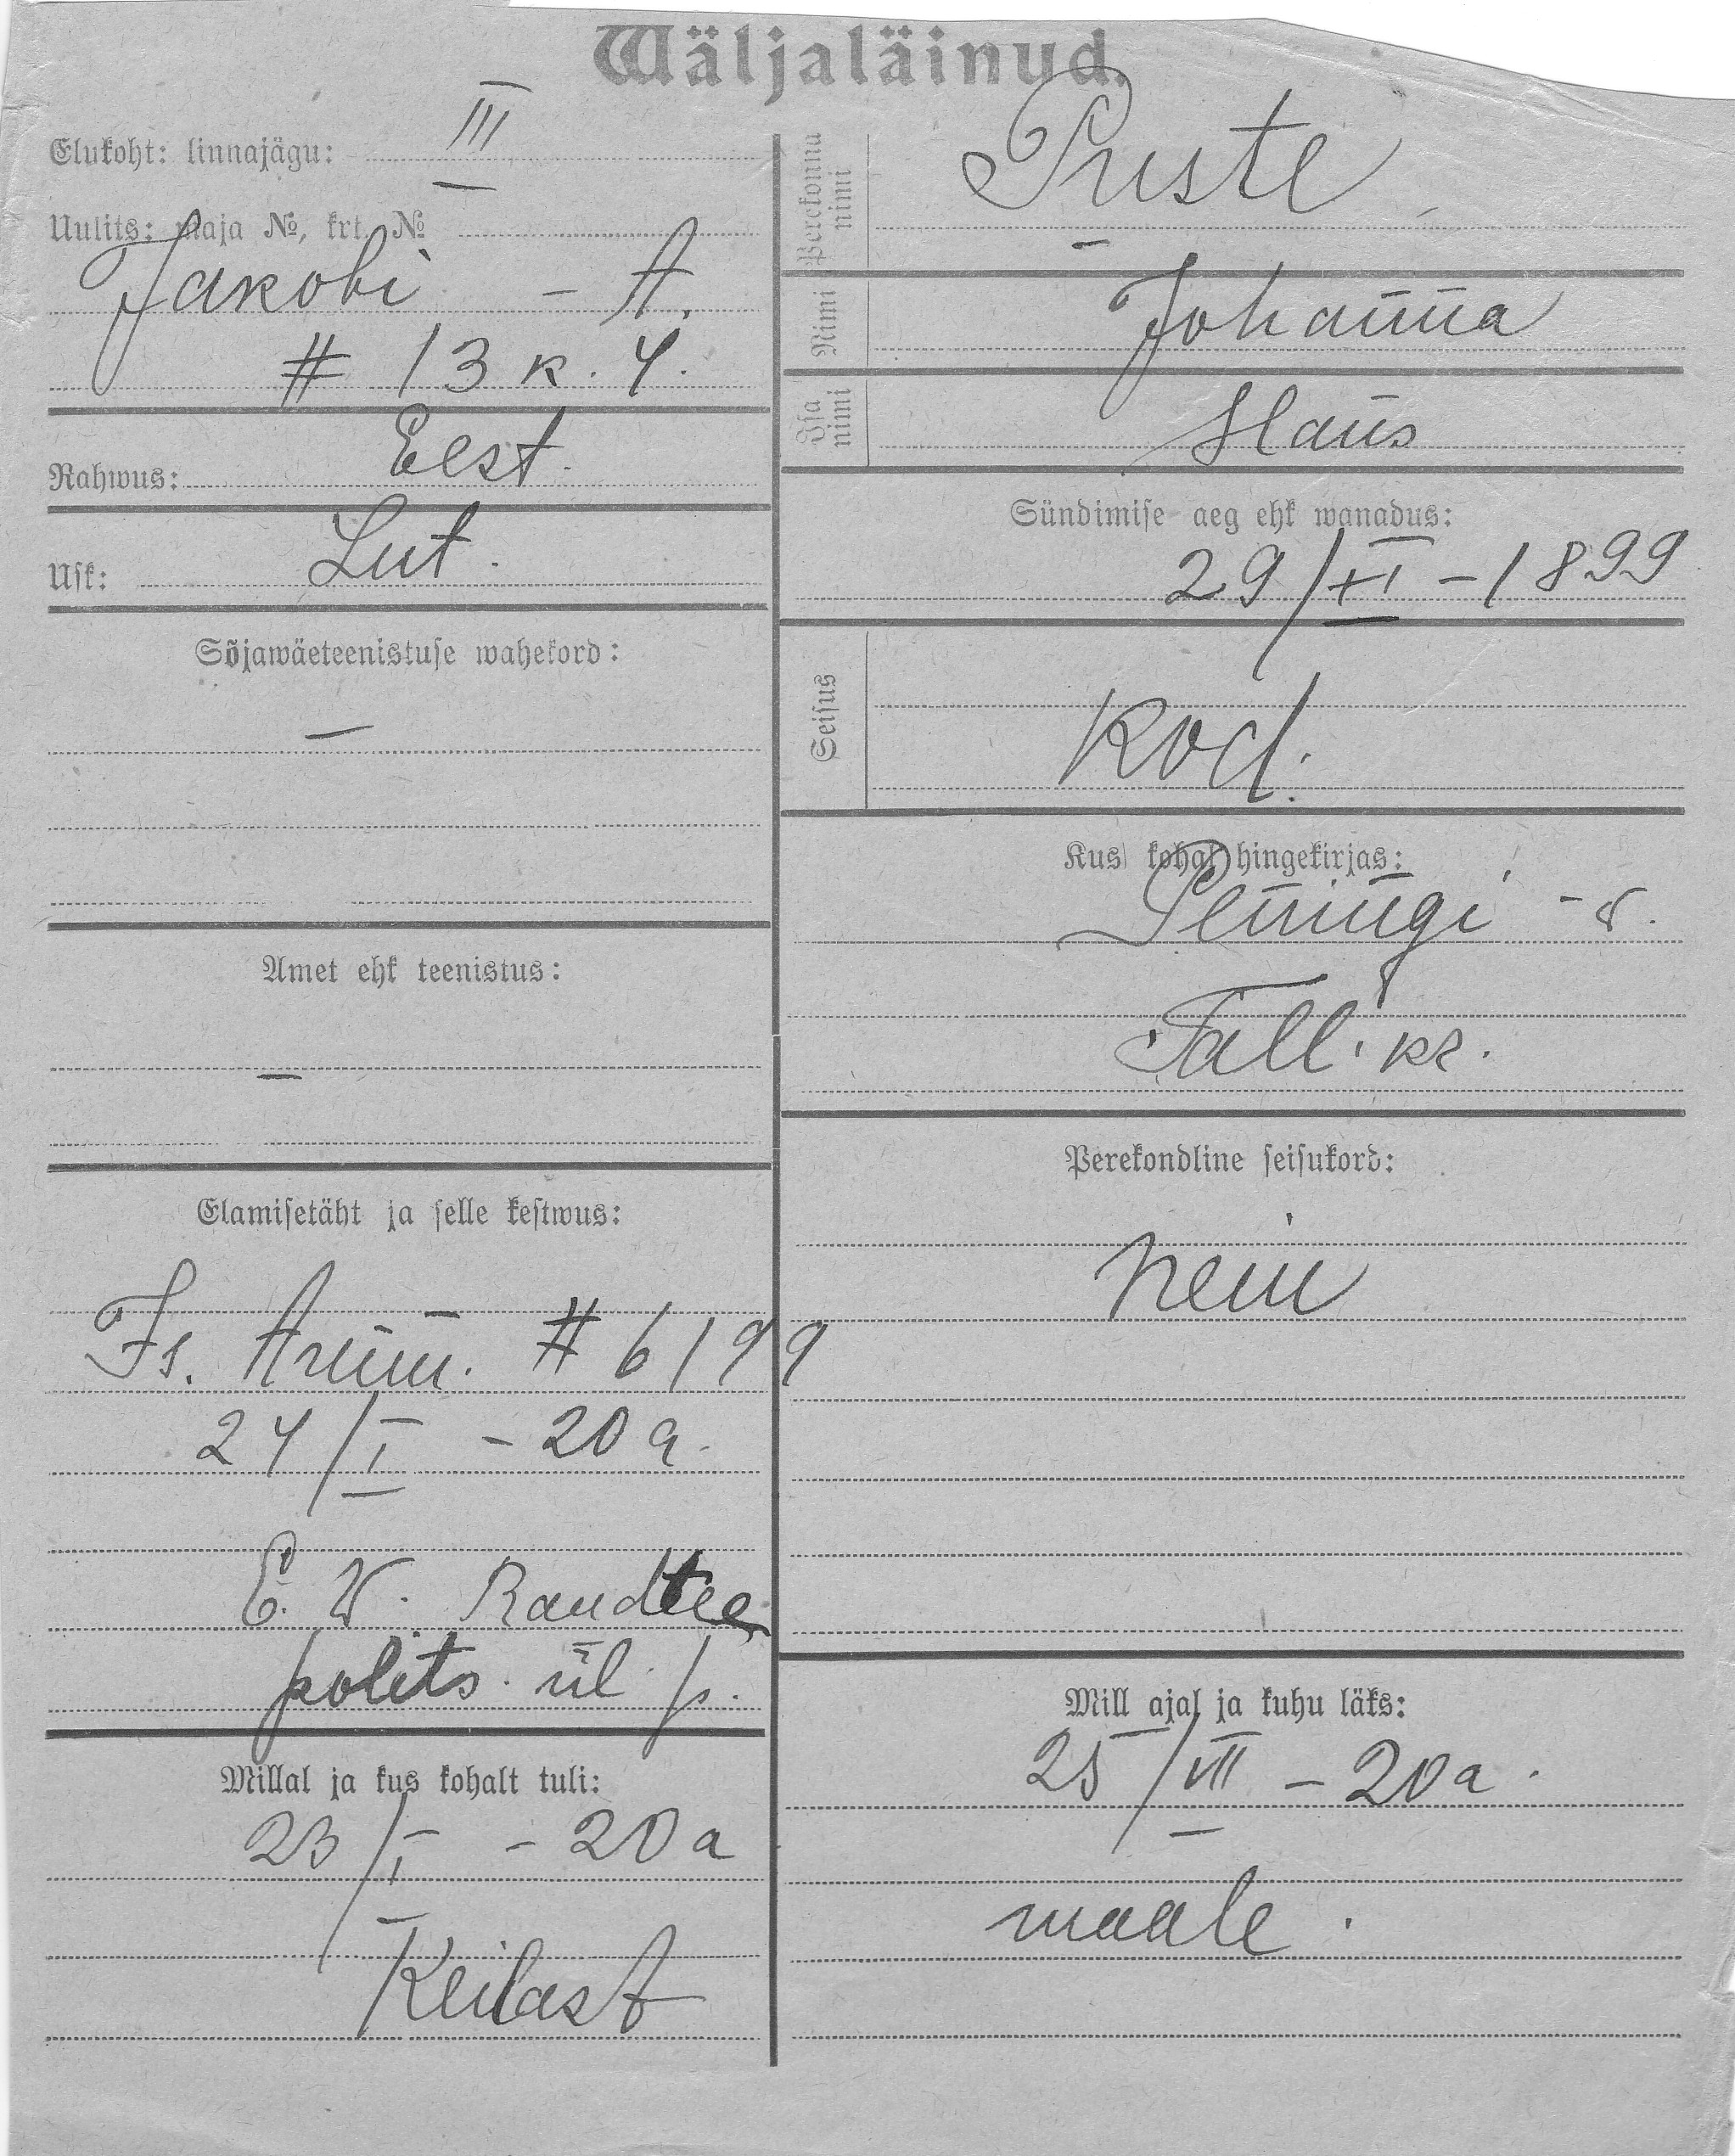 Wäljaläinud.
Elukoht: linnajägu: III
Uulits: maja №, krt. №
Jakobi - A.
# 13 k. 4.
Rahwus: Eest.
Usk: Lut.
Sõjawäeteenistuse wahekord:
—
Amet ehk teenistus:
—
Elamisetäht ja selle kestwus:
Is. # 6199
24/I - 20 a.
E. W. Raudtee
polits. ül. p.
Millal ja kus kohalt tuli:
23/I - 20 a
Keilast
Perekonna nimi
Nimi Johanna
Isa nimi Hans
Sündimise aeg ehk wanadus:
29/XI - 1899
Seisus kod.
Kus kohal hingekirjas:
Peningi - v.
Tall. kr.
Perekondline seisukord:
neiu
Mill ajal ja kuhu läks:
25/VII - 20 a.
maale.